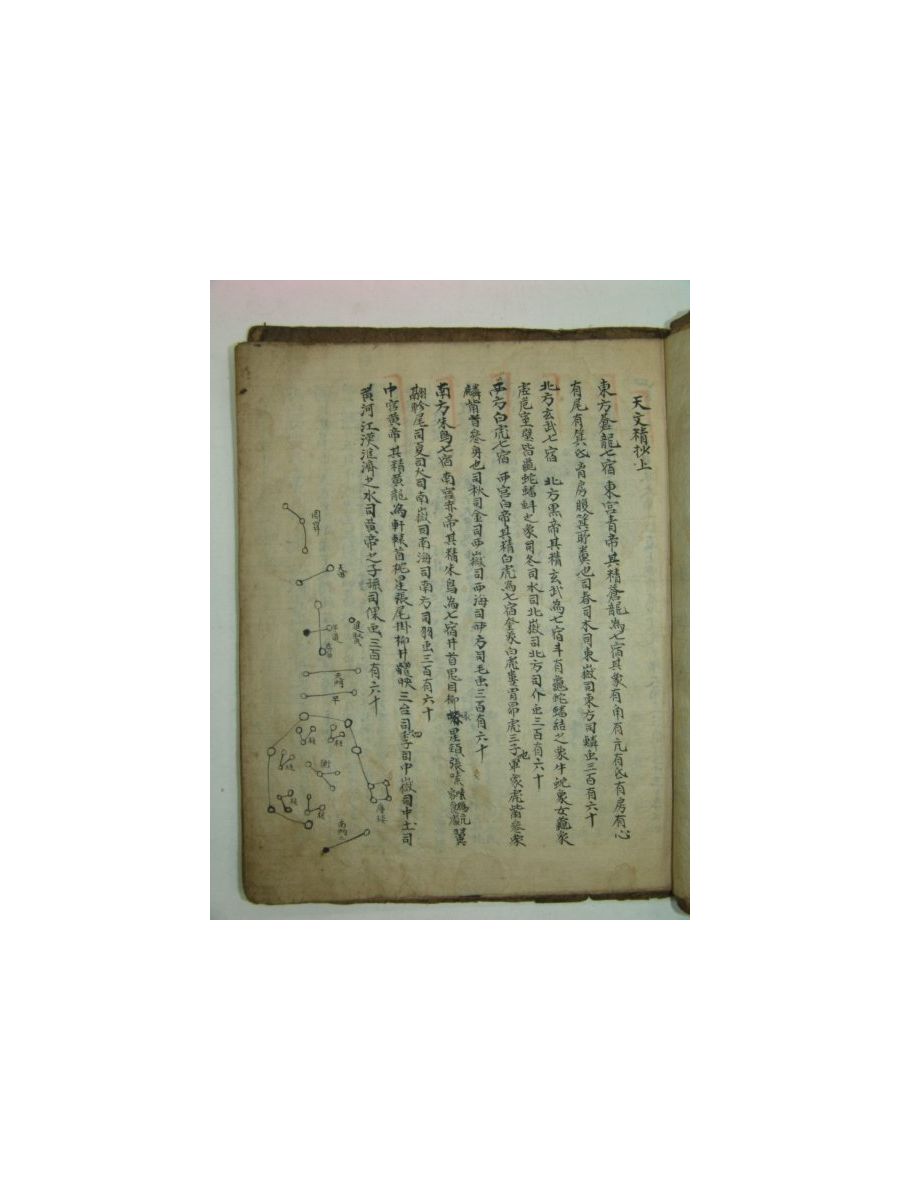 天文精抄上
東方蒼龍七宿 東宮青帝其精蒼龍為七宿其象有角有亢有氐有房有心
有尾有箕氐胷房腹箕所糞也司春司木司東嶽司東方司鱗虫三百有六十
北方玄武七宿 北方黑帝其精玄武為七宿斗有龜蛇蟠結之象牛蛇象女龜象
虛危室壁皆龜蛇蟠蚪之象司冬司水司北嶽司北方司介虫三百有六十
西方白虎七宿 西宮白帝其精白虎為七宿奎象白虎婁胃昴虎三子也畢象虎觜參象
麟觜首參身也司秋司金司西嶽司西海司西方司毛虫三百有六十
南方朱鳥七宿 南宮赤帝其精朱鳥為七宿井首鬼目柳星頸張嗉翼
翮軫尾司夏司火司南嶽司南海司南方司羽虫三百有六十
中宮黃帝其精黃龍為軒轅首枕星張尾掛柳井體映三台司四季司中嶽司中土司
黃河江漢淮濟之水司黃帝之子孫司倮虫三百有六十
周鼎
天田
進賢
平道
天門
平
柱
柱
柱
衡
柱
柱
庫樓
南門